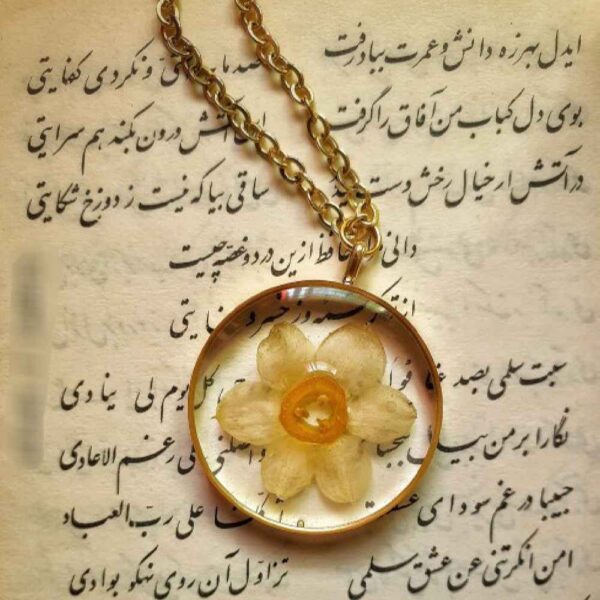 ایدل بهرزه دانش و عمرت بباد رفت صد ما و نکردی کفایتی
بوی دل کباب من آفاق را گرفت این آتش درون بکند هم سرایتی
در آتش ار خیال رخش دست ساقی بیا که نیست ز دوزخ شکایتی
دانی حافظ ازین درد و غصه چیست
از تو کرشمه وز خسرو عنایتی
سبت سلمی بصد غیها فؤادی کل یوم لی ینادی
نگارا بر من بیدل ببخشای و واصلنی علی رغم الاعادی
حبیبا در غم سودای عشقت علی رب العباد
امن انکرتنی عن عشق سلمی تزاول آن روی نهکو بوادی